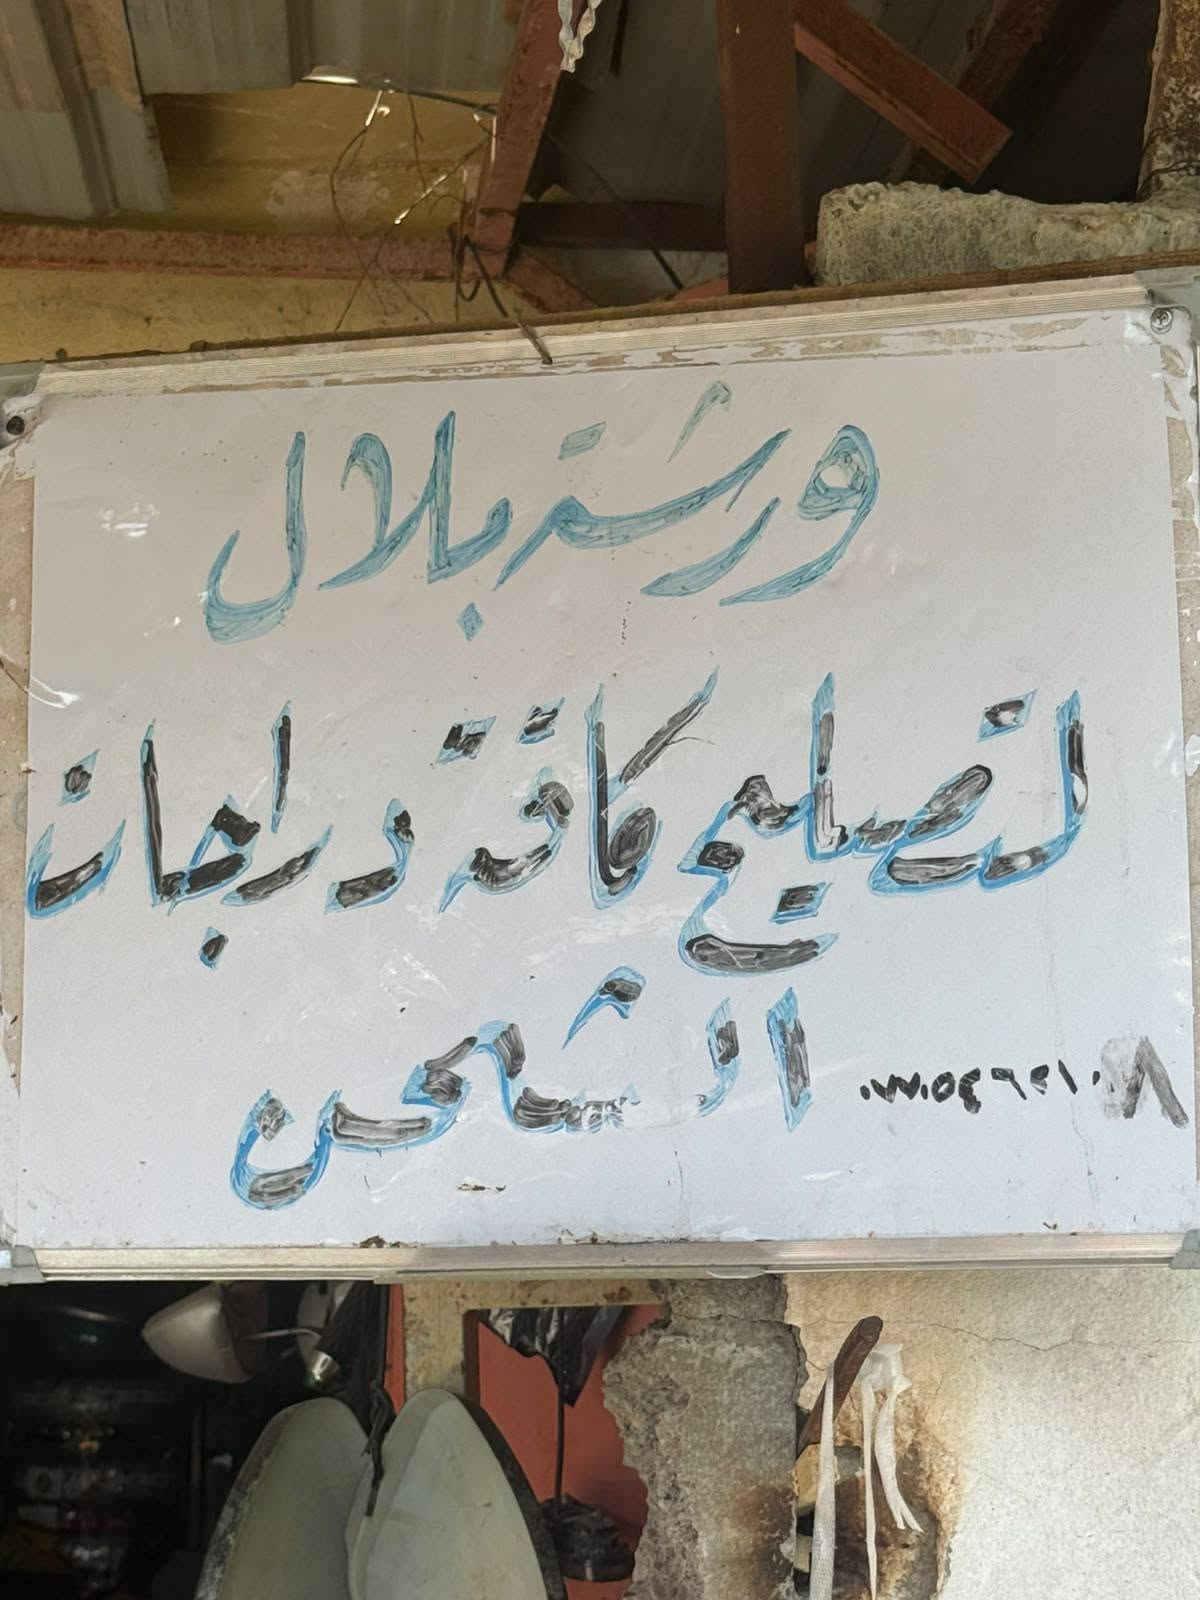 ورشة بلال
لتصليح كافة دراجات
الشحن